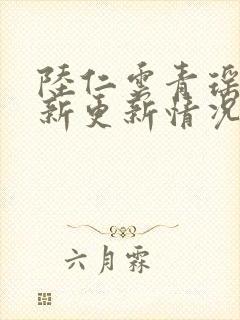 陸仁雲青瑶
新更新情况
六月霖